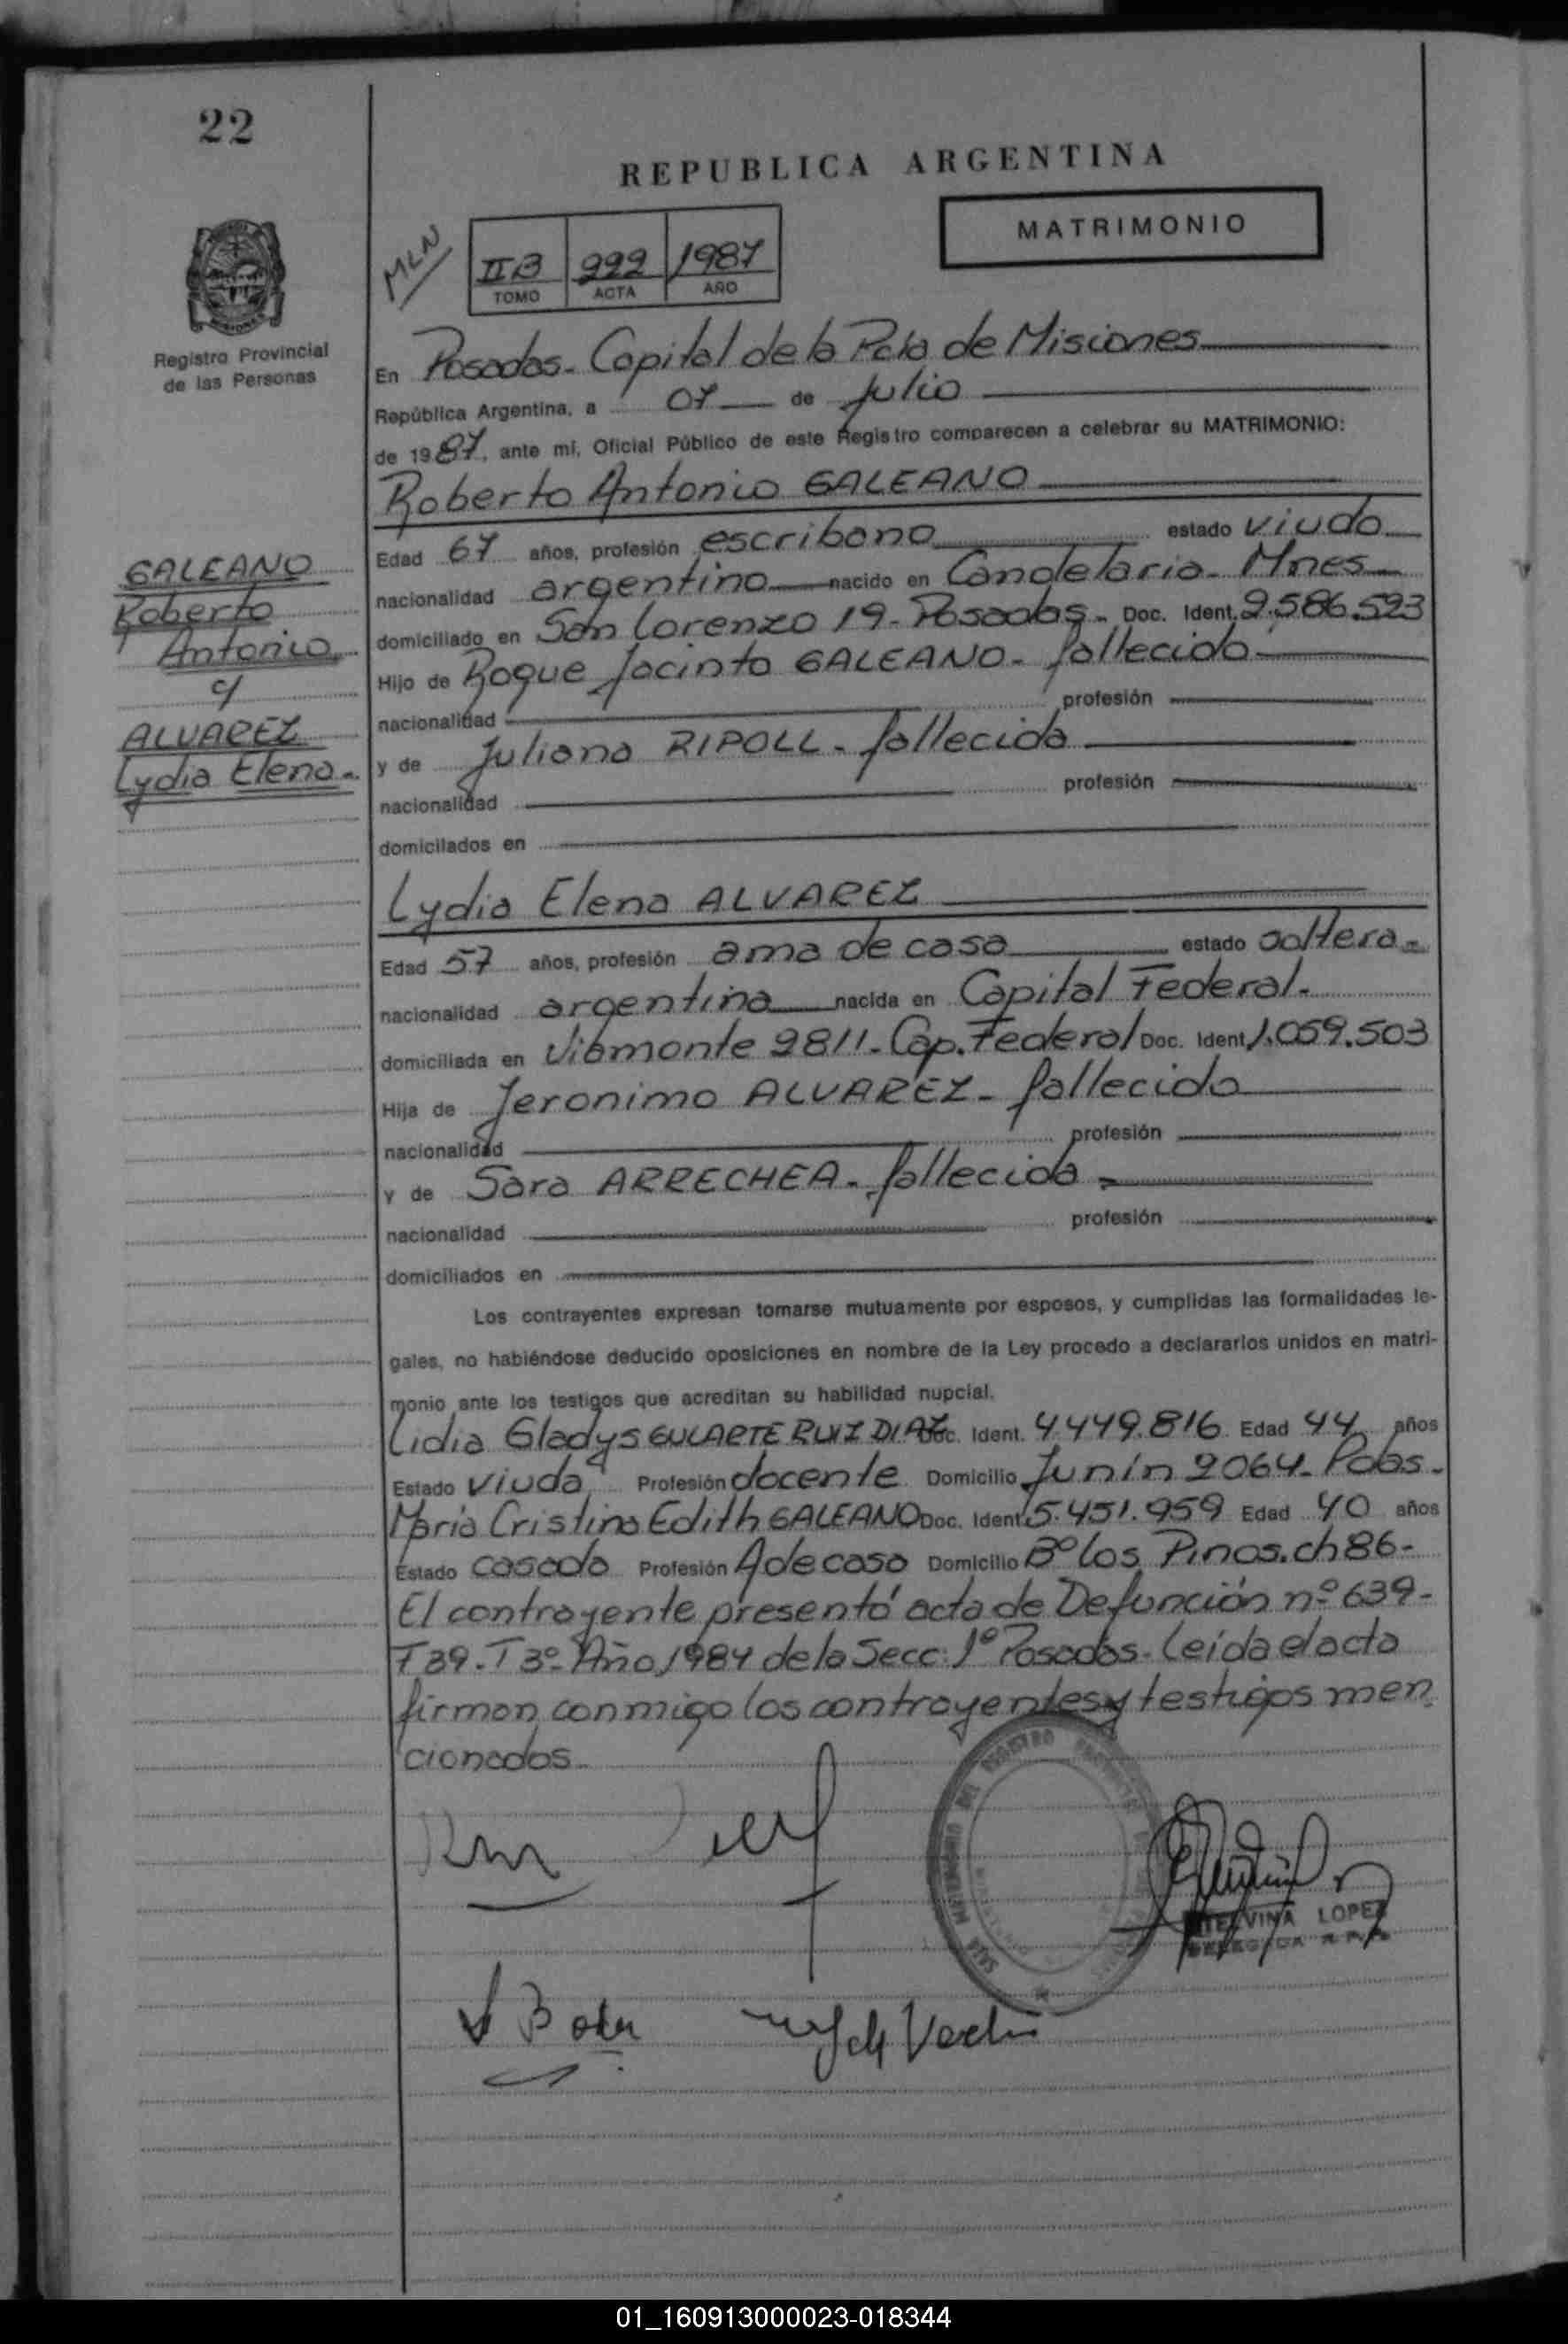 22
REPUBLICA ARGENTINA
MATRIMONIO
MLN
IIB 222 1987
TOMO ACTA AÑO
Registro Provincial
de las Personas
En Posadas - Capital de la Pcia de Misiones
República Argentina, a 07 de Julio
de 1987, ante mí, Oficial Público de este Registro comparecen a celebrar su MATRIMONIO:
Roberto Antonio GALEANO
Edad 67 años, profesión escribano estado viudo
nacionalidad argentino nacido en Candelaria - Mnes
domiciliado en San Lorenzo 19 - Posadas - Doc. Ident. 2.586.523
Hijo de Roque Jacinto GALEANO - fallecido
nacionalidad profesión
y de Juliana RIPOLL - fallecida
nacionalidad profesión
domicilados en
GALEANO
Roberto
Antonio
c/
ALVAREZ
Lydia Elena -
Lydia Elena ALVAREZ
Edad 57 años, profesión ama de casa estado soltera -
nacionalidad argentina nacida en Capital Federal -
domiciliada en Viamonte 2811 - Cap. Federal Doc. Ident. 1.059.503
Hija de Jeronimo ALVAREZ - fallecido
nacionalidad profesión
y de Sara ARRECHEA - fallecida -
nacionalidad profesión
domiciliados en
Los contrayentes expresan tomarse mutuamente por esposos, y cumplidas las formalidades le-
gales, no habiéndose deducido oposiciones en nombre de la Ley procedo a declararlos unidos en matri-
monio ante los testigos que acreditan su habilidad nupcial.
Lidia Gladys GULARTE RUIZ DIAZ Doc. Ident. 4.449.816 Edad 44 años
Estado viuda Profesión docente Domicilio Junín 2064 - Pdas -
Maria Cristina Edith GALEANO Doc. Ident. 5.451.959 Edad 40 años
Estado casada Profesión A de casa Domicilio Bº los Pinos. ch 86 -
El contrayente presentó acta de Defunción nº 639 -
F 39 - T 3º - Año 1984 de la Secc. 1º Posadas - Leída el acta
firman conmigo los contrayentes y testigos men
cionados -
LOPEZ
01_160913000023-018344